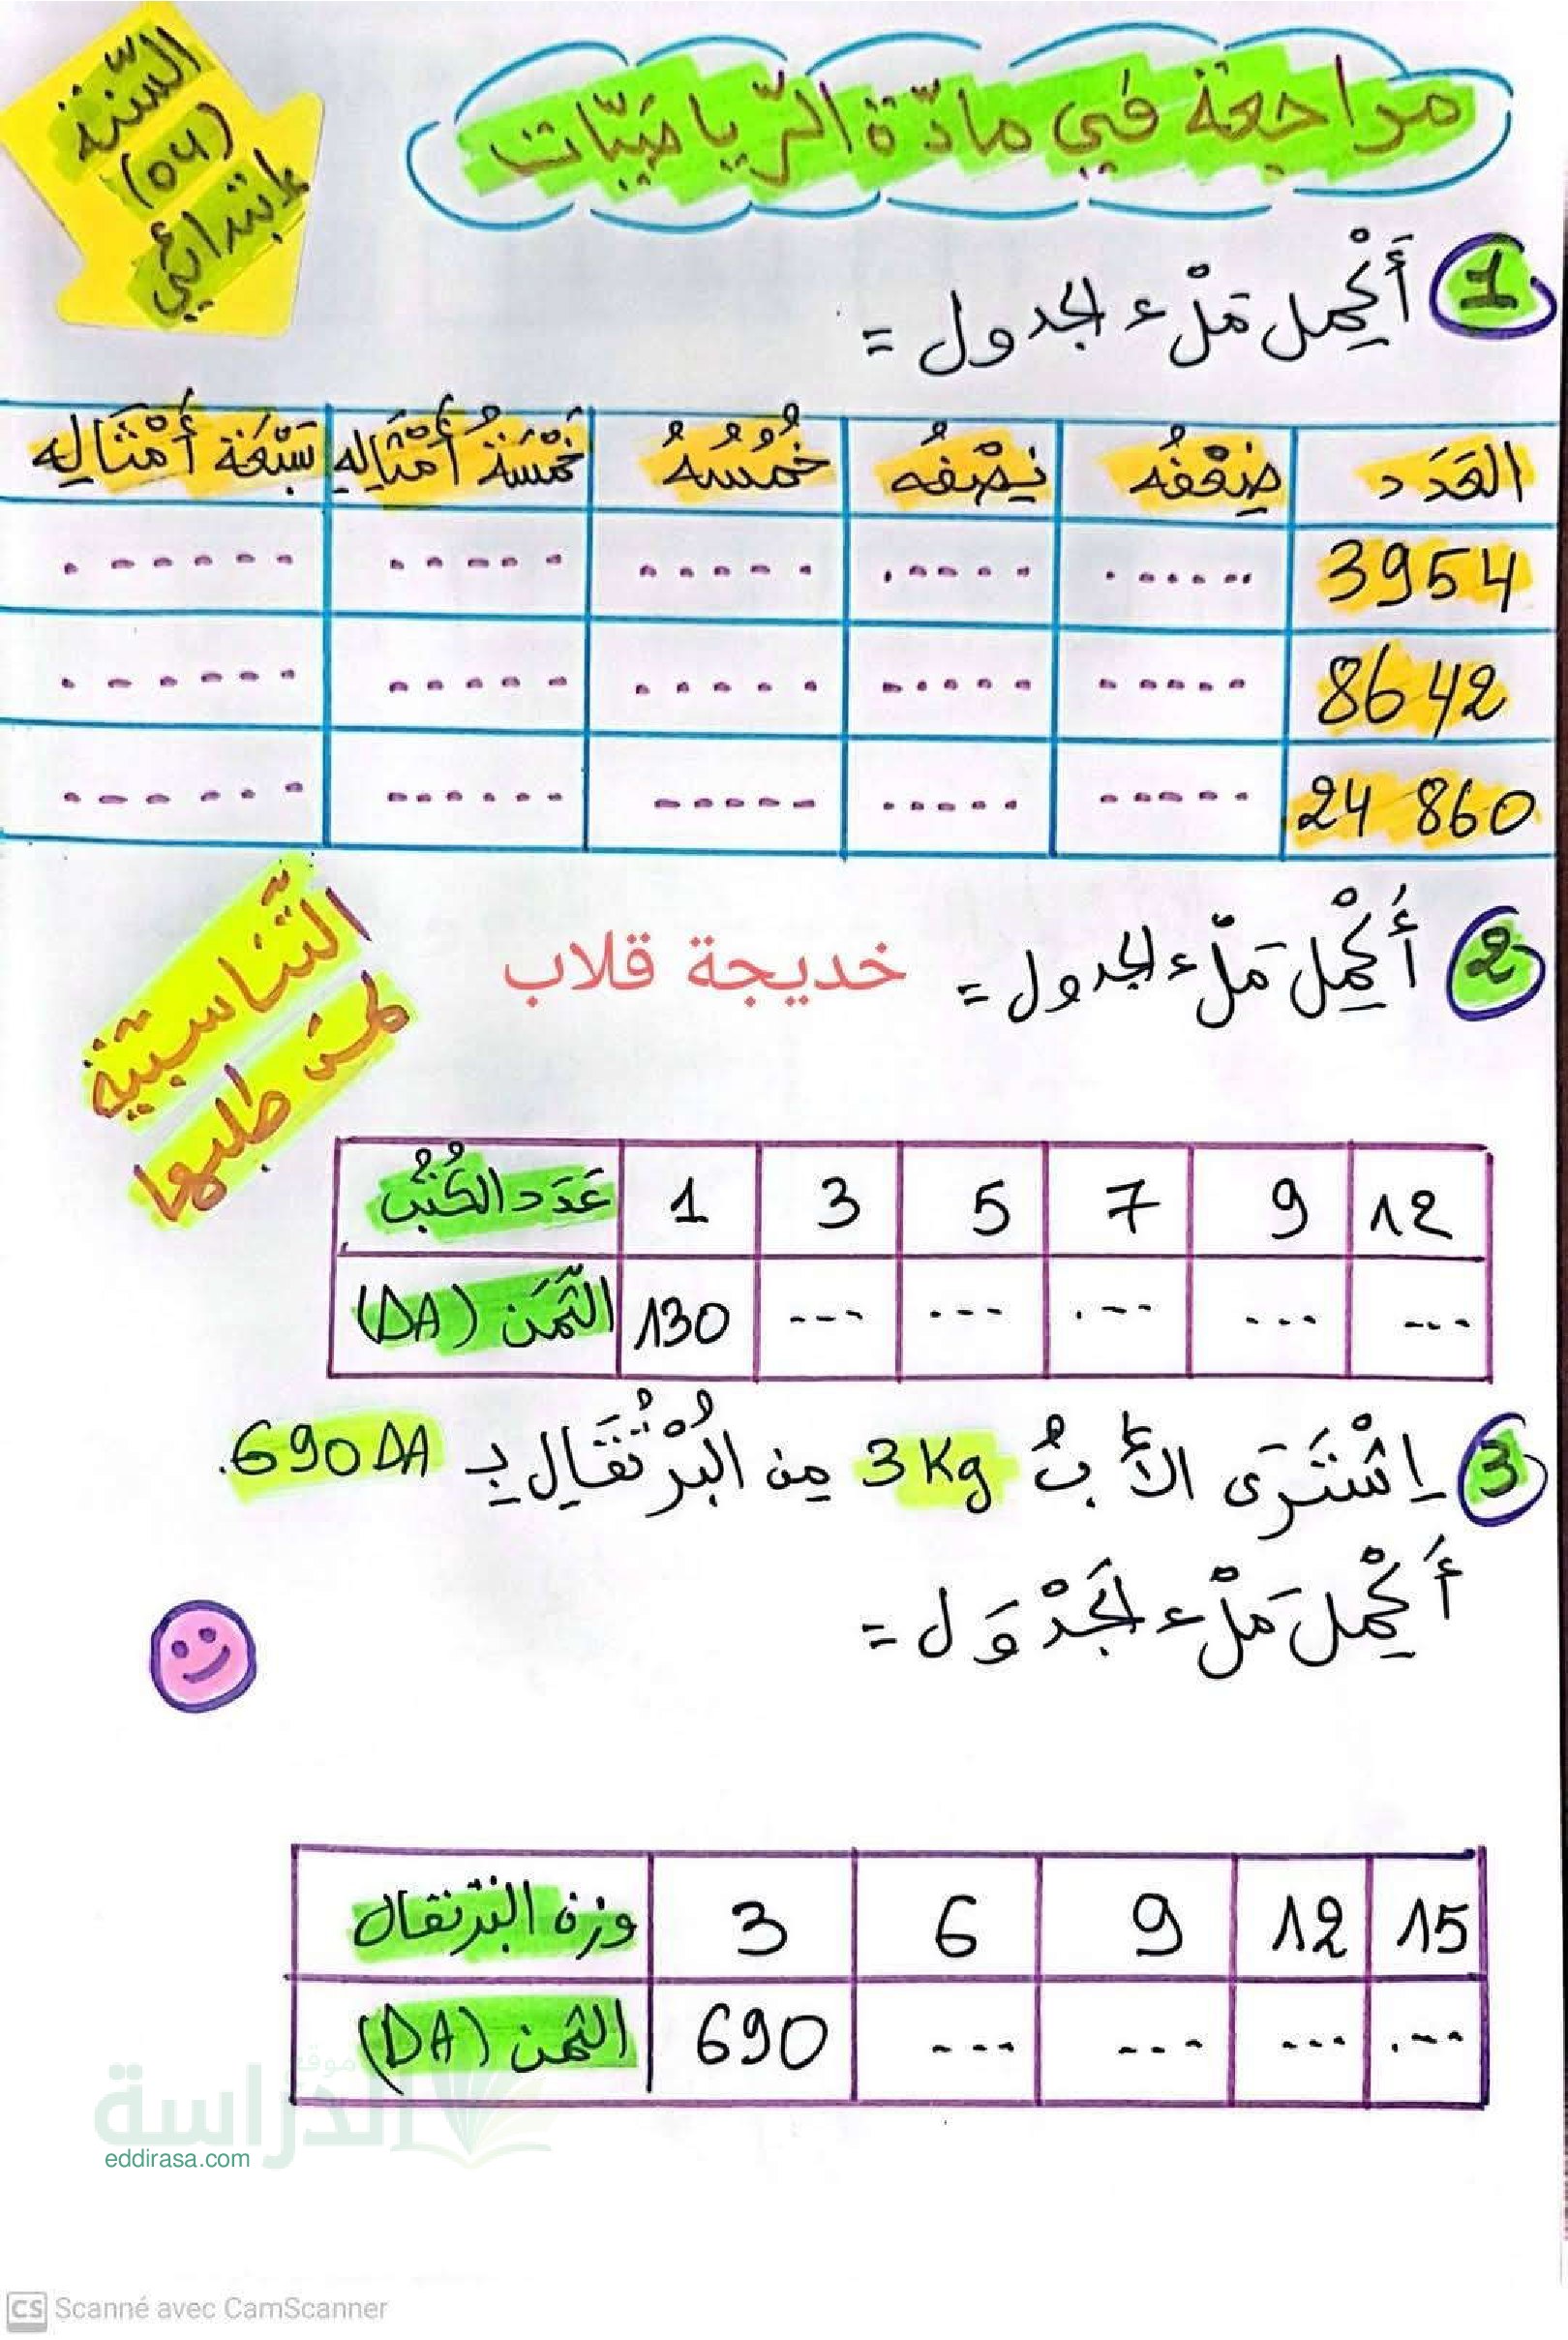 مراجعة في مادّة الرّياضيّات
السّنة
(04)
إبتدائي
1 أَكْمِل مَلْء الجدول =
العَدَد ضِعْفُه نِصْفُه خُمُسُهُ خَمْسَةُ أَمْثَالِهِ سَبْعَة أَمْثَالِهِ
3954 ...... ...... ...... ...... ......
8642 ...... ...... ...... ...... ......
24 860 ...... ...... ...... ...... ......
2 أَكْمِل مَلْء الجدول = خديجة قلاب
التّناسبية
لمن طلبها
عَدَد الكُتُب 1 3 5 7 9 12
الثّمَن (DA) 130 ... ... ... ... ...
3 اِشْتَرَى الأَبُ 3Kg مِن البُرْتُقَالِ بِـ 690DA.
أَكْمِل مَلْء الجَدْوَل =
وزن البرتقال 3 6 9 12 15
الثمن (DA) 690 ... ... ... ...
موقع
الدراسة
eddirasa.com
CS Scanné avec CamScanner